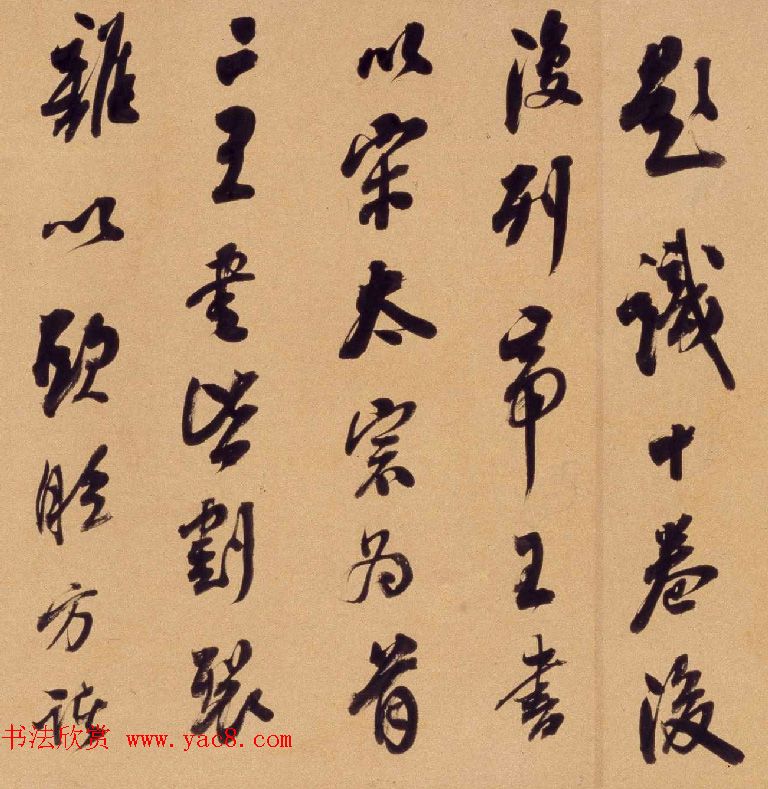 題識十卷後
復列帝王書
以宋太宗為首
二王書皆割裂
難以 方諸
书法欣赏 www.yac8.com